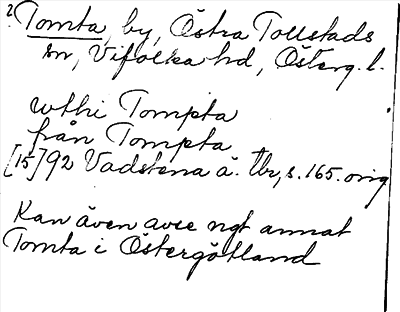 2. Tomta, by, Östra Tollstads
sn, Vifolka hd, Österg. l.
uthi Tompta
från Tompta
[15]92 Vadstena ä. Tbr, s. 165. orig.
Kan även avse ngt annat
Tomta i Östergötland